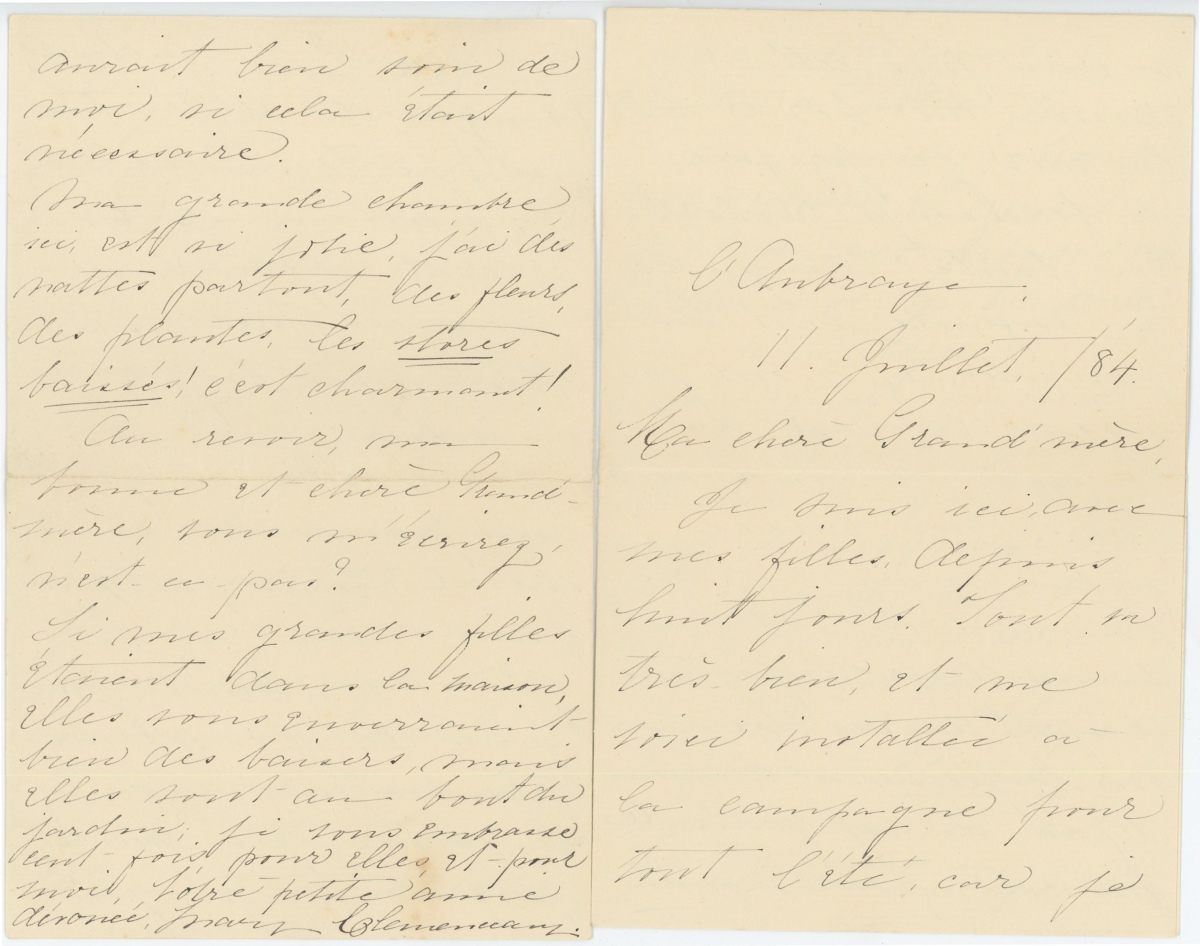 aurait bien soin de
moi, si cela était
nécessaire.
Ma grande chambre
ici, est si jolie, j'ai des
nattes partout, des fleurs,
des plantes, les stores
baissés! c'est charmant!
Au revoir, ma
bonne et chère Grand'-
mère, vous m'écrirez,
n'est-ce-pas?
Si mes grandes filles
étaient dans la maison,
elles vous enverraient
bien des baisers, mais
elles sont au bout du
jardin; je vous embrasse
cent fois pour elles, et pour
moi, Votre petite amie
dévouée, Mary Clemenceau.
l'Aubraye.
11. Juillet, /84.
Ma chère Grand'mère,
Je suis ici, avec
mes filles, depuis
huit jours. Tout va
très bien, et me
voici installée à
la campagne pour
tout l'été, car je